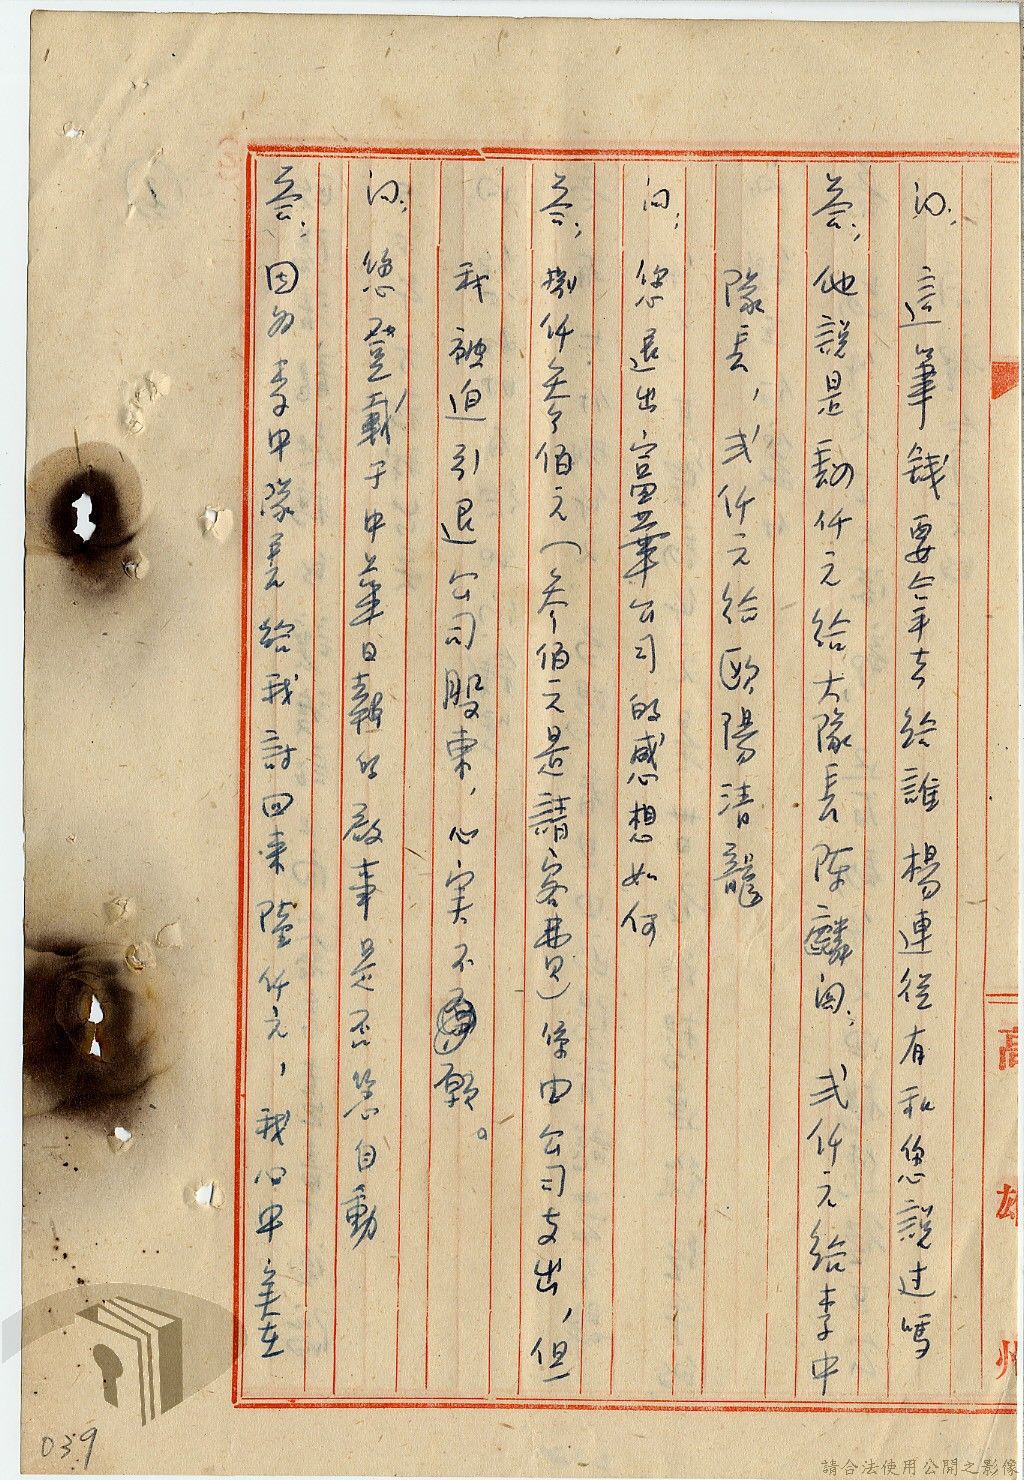 問：這筆錢要拿去給誰楊連從有和您說过嗎
答：他說是動仟元給大隊長陈麟阁；弍仟元給李中
隊長，弍仟元給歐陽清龍
问：您退出富華公司的感想如何
答：捌仟叁佰元（叁佰元是請客費）係由公司支出，但
我被迫引退公司股東，心实不願。
问：您登載于中華日報的啟事是否您自動
答：因为李中隊長給我討回来陸仟元，我心中实在
高雄州
039
請合法使用公開之影像